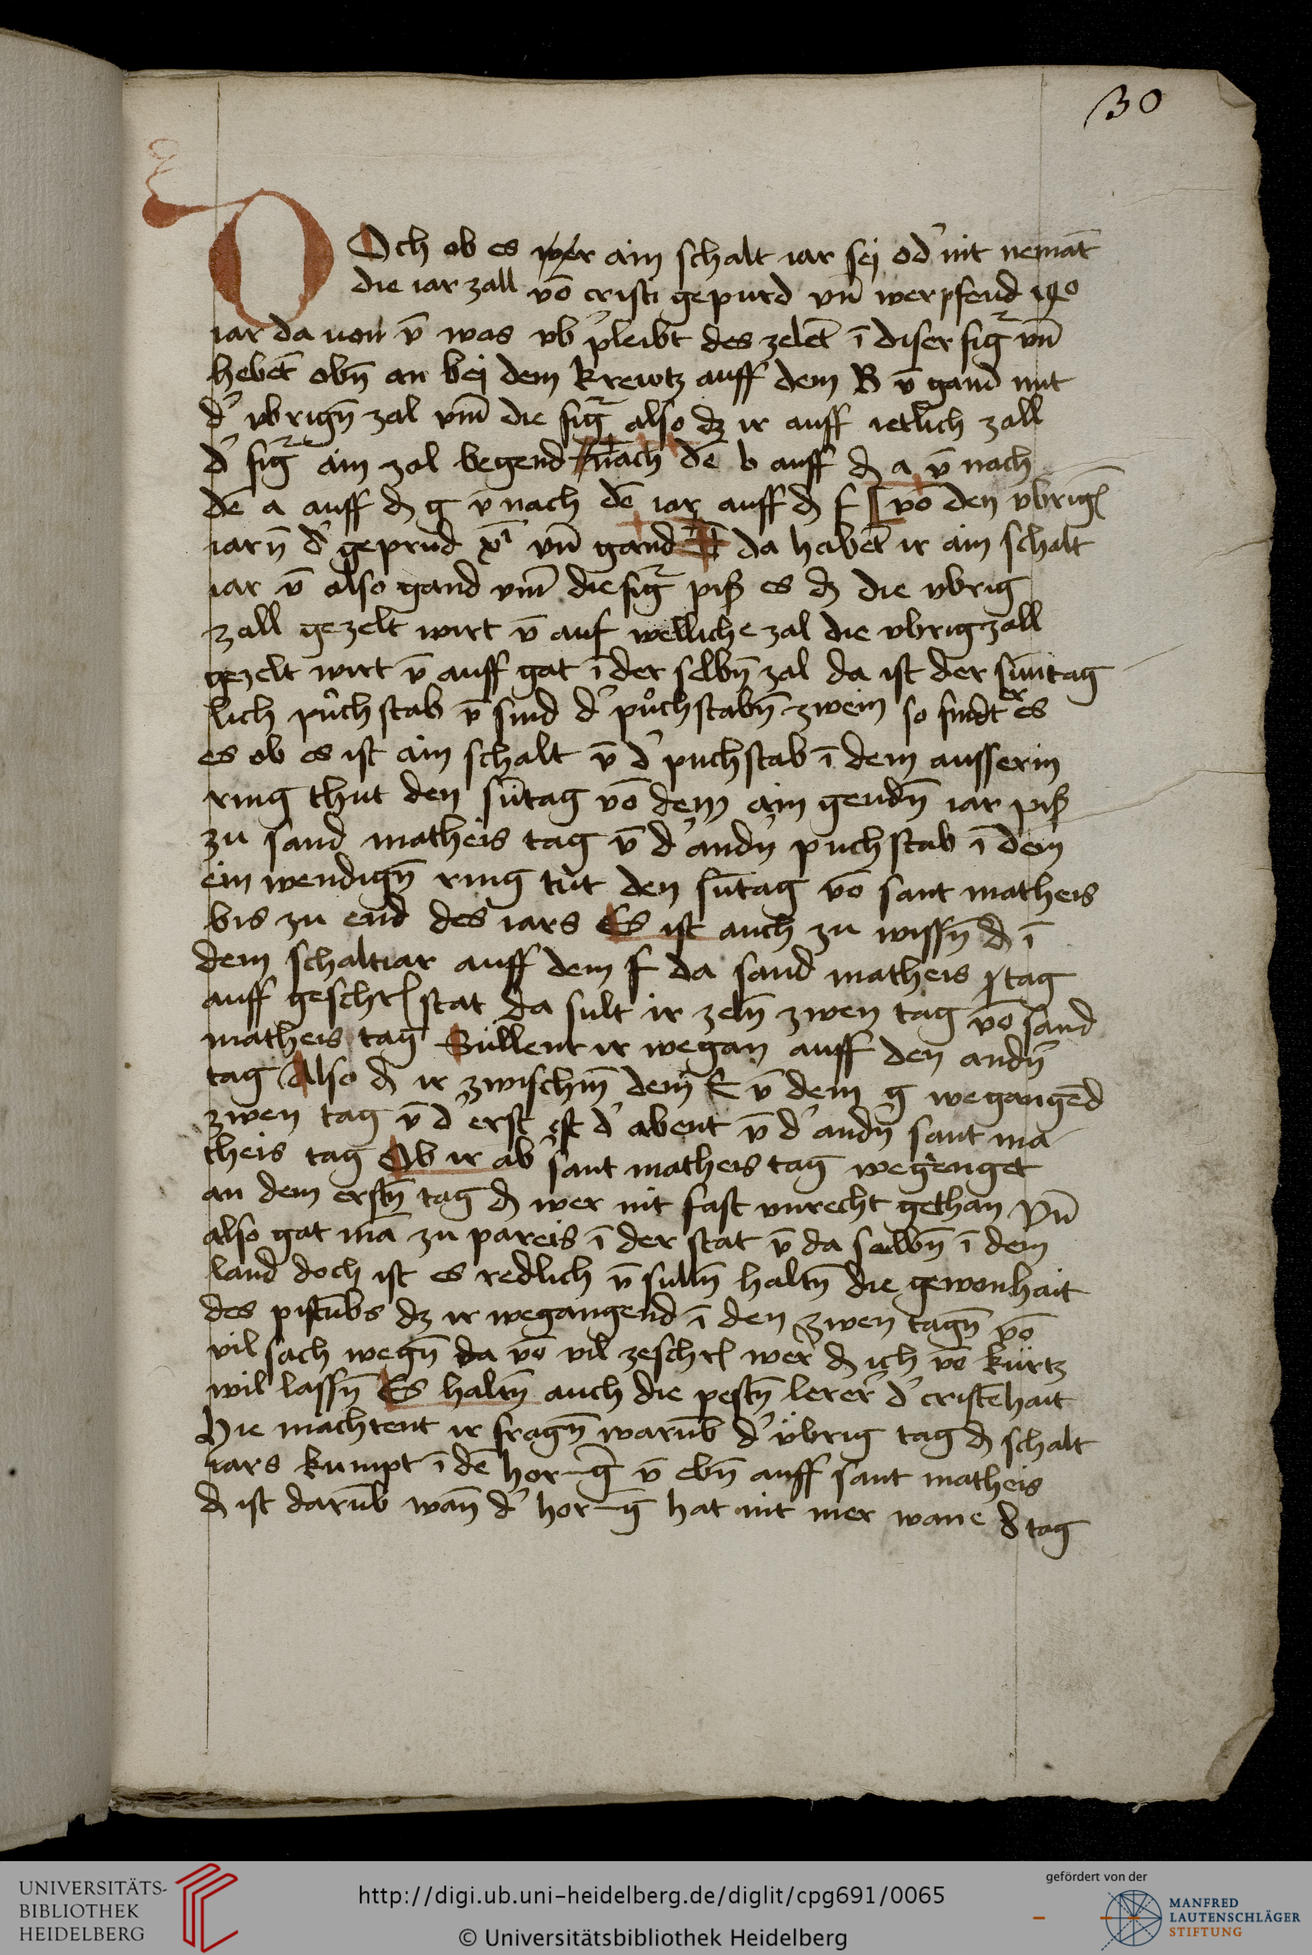 30
Och ob es wer ain schalt iar sej od' nit nemāt
die iar zall vō cristi gepurd vn̄ werpfend
iar da von v̄ was vb' pleibt des zelēt ī diser figr vn̄
hebēt obn̄ an bej dem krewtz auff dem B v̄ gand mit
d' vbrign̄ zal vm̄ die figr also dz ir auff ietlich zall
d' figr ain zal begend nach dē b auff dz a v̄ nach
dē a auff dz g v̄ nach dē iar auff dz f vō den vbrigē
iarn̄ d' geprud xī vn̄ gand da habēt ir ain schalt
iar v̄ also gand vm̄ die figr piß es dz die vbrig
zall gezelt wirt v̄ auf welliche zal die vbrig zall
gezelt wirt v̄ auff gat ī der selbn̄ zal da ist der sūntag
lich půchstab v̄ sind d' půchstabn̄ zwein so findt er es
es ob es ist ain schalt v̄ d' puchstab ī dem ausserin
ring thut den sūtag vō dem ain gendn̄ iar piß
zu sand matheis tag v̄ d' andn̄ puchstab ī dem
ein wendign̄ ring tůt den sūtag vō sant matheis
bis zu end des iars Es ist auch zu wissn̄ dz ī
dem schaltiar auff dem f da sand matheis tag
auff geschrē stat da sult ir zeln̄ zwen tag vō sand
matheis tag Süllent ir wegan auff den andn̄
tag Also dz ir zwischīn dem f v̄ dem g wegangēd
zwen tag v̄ d' erst ist d' abent v̄ d' andn̄ sant ma
theis tag Ob ir ab' sant matheis tag wegenget
an dem erstn̄ tag dz wer nit fast vnrecht gethan Vn̄
also gat mā zu pareis ī der stat v̄ da selbn̄ ī dem
land doch ist es redlich v̄ sulln̄ haltn̄ die gewonhait
des pistūbs dz ir wegangend ī den zwen tagn̄ vō
vil sach wegn̄ da vō vil zeschrē wer dz ich vō kürtz
wil lassn̄ Es haltn̄ auch die pestn̄ lerer d' cristēhait
Hie machtent ir fragn̄ warūb d' übrig tag dz schalt
iars kumpt ī dē hor-g v̄ ebn̄ auff sant matheis
dz ist darūb wan̄ d' hor-g hat nit mer wane 8 tag
UNIVERSITÄTS-
BIBLIOTHEK
HEIDELBERG
http://digi.ub.uni-heidelberg.de/diglit/cpg691/0065
© Universitätsbibliothek Heidelberg
gefördert von der
MANFRED
LAUTENSCHLÄGER
STIFTUNG